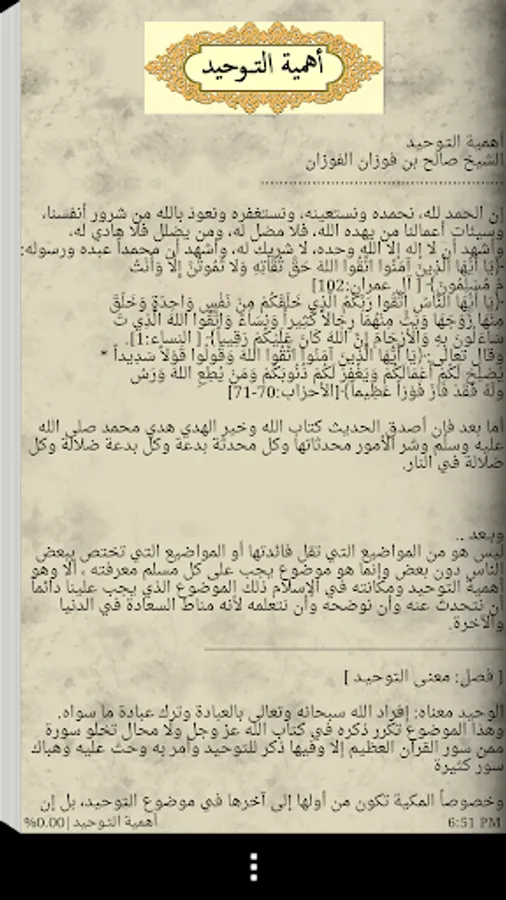 أهمية التوحيد
أهمية التوحيد
الشيخ صالح بن فوزان الفوزان
................................................
إن الحمد لله، نحمده ونستعينه، ونستغفره ونعوذ بالله من شرور أنفسنا،
وسيئات أعمالنا من يهده الله، فلا مضل له، ومن يضلل فلا هادي له،
وأشهد أن لا إله إلا الله وحده، لا شريك له، وأشهد أن محمداً عبده ورسوله:
{يَا أَيُّهَا الَّذِينَ آمَنُوا اتَّقُوا اللَّهَ حَقَّ تُقَاتِهِ وَلا تَمُوتُنَّ إِلَّا وَأَنْتُ
مْ مُسْلِمُونَ} [ آل عمران:102]
{يَا أَيُّهَا النَّاسُ اتَّقُوا رَبَّكُمُ الَّذِي خَلَقَكُمْ مِنْ نَفْسٍ وَاحِدَةٍ وَخَلَقَ
مِنْهَا زَوْجَهَا وَبَثَّ مِنْهُمَا رِجَالاً كَثِيراً وَنِسَاءً وَاتَّقُوا اللَّهَ الَّذِي تَ
سَاءَلُونَ بِهِ وَالْأَرْحَامَ إِنَّ اللَّهَ كَانَ عَلَيْكُمْ رَقِيباً}؛ [ النساء:1].
وقال تعالى :{يَا أَيُّهَا الَّذِينَ آمَنُوا اتَّقُوا اللَّهَ وَقُولُوا قَوْلاً سَدِيداً *
يُصْلِحْ لَكُمْ أَعْمَالَكُمْ وَيَغْفِرْ لَكُمْ ذُنُوبَكُمْ وَمَنْ يُطِعِ اللَّهَ وَرَسُ
ولَهُ فَقَدْ فَازَ فَوْزاً عَظِيماً}[الأحزاب:70-71]
أما بعد فإن أصدق الحديث كتاب الله وخير الهدي هدي محمد صلى الله
عليه وسلم وشر الأمور محدثاتها وكل محدثة بدعة وكل بدعة ضلالة وكل
ضلالة في النار.
وبعد ..
ليس هو من المواضيع التي تقل فائدتها أو المواضيع التي تختص ببعض
الناس دون بعض وإنما هو موضوع يجب على كل مسلم معرفته ، ألا وهو
أهمية التوحيد ومكانته في الإسلام ذلك الموضوع الذي يجب علينا دائماً
أن نتحدث عنه وأن نوضحه وأن نتعلمه لأنه مناط السعادة في الدنيا
والآخرة.
[ فصل: معنى التوحيد ]
الوحيد معناه: إفراد الله سبحانه وتعالى بالعبادة وترك عبادة ما سواه.
وهذا الموضوع تكرر ذكره في كتاب الله عز وجل ولا محال تخلو سورة
ممن سور القرآن العظيم إلا وفيها ذكر للتوحيد وأمر به وحث عليه وهباك
سور كثيرة
وخصوصاً المكية تكون من أولها إلى آخرها في موضوع التوحيد، بل إن
6:51 PM أهمية التوحيد|0.00%